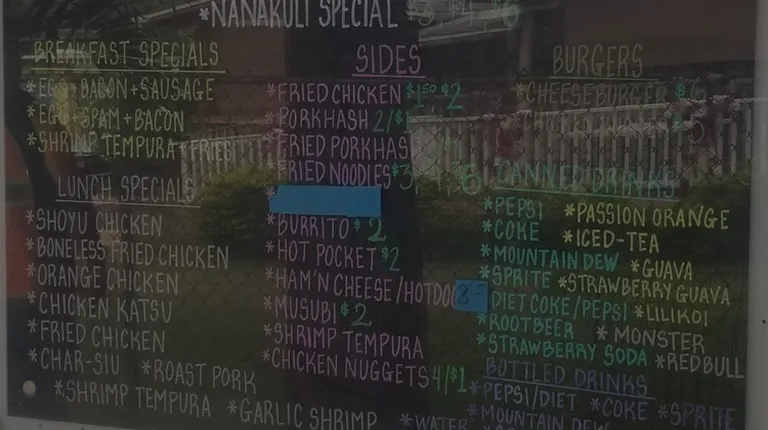 *NANAKULI SPECIAL $3, $4, $6
BREAKFAST SPECIALS
*EGG+BACON+SAUSAGE
*EGG+SPAM+BACON
*SHRIMP TEMPURA+FRIES
LUNCH SPECIALS
*SHOYU CHICKEN
*BONELESS FRIED CHICKEN
*ORANGE CHICKEN
*CHICKEN KATSU
*FRIED CHICKEN
*CHAR-SIU *ROAST PORK
*SHRIMP TEMPURA *GARLIC SHRIMP
SIDES
*FRIED CHICKEN $1.50, $2
*PORKHASH 2/$1
*FRIED PORKHASH
*FRIED NOODLES $3, 4, $6
*BURRITO $2
*HOT POCKET $2
*HAM'N CHEESE/HOTDOG
*MUSUBI $2
*SHRIMP TEMPURA
*CHICKEN NUGGETS 4/$1
BURGERS
*CHEESEBURGER $6
CANNED DRINKS
*PEPSI *PASSION ORANGE
*COKE *ICED-TEA
*MOUNTAIN DEW *GUAVA
*SPRITE *STRAWBERRY GUAVA
*DIET COKE/PEPSI *LILIKOI
*ROOTBEER *MONSTER
*STRAWBERRY SODA *REDBULL
BOTTLED DRINKS
*PEPSI/DIET *COKE *SPRITE
*WATER *MOUNTAIN DEW